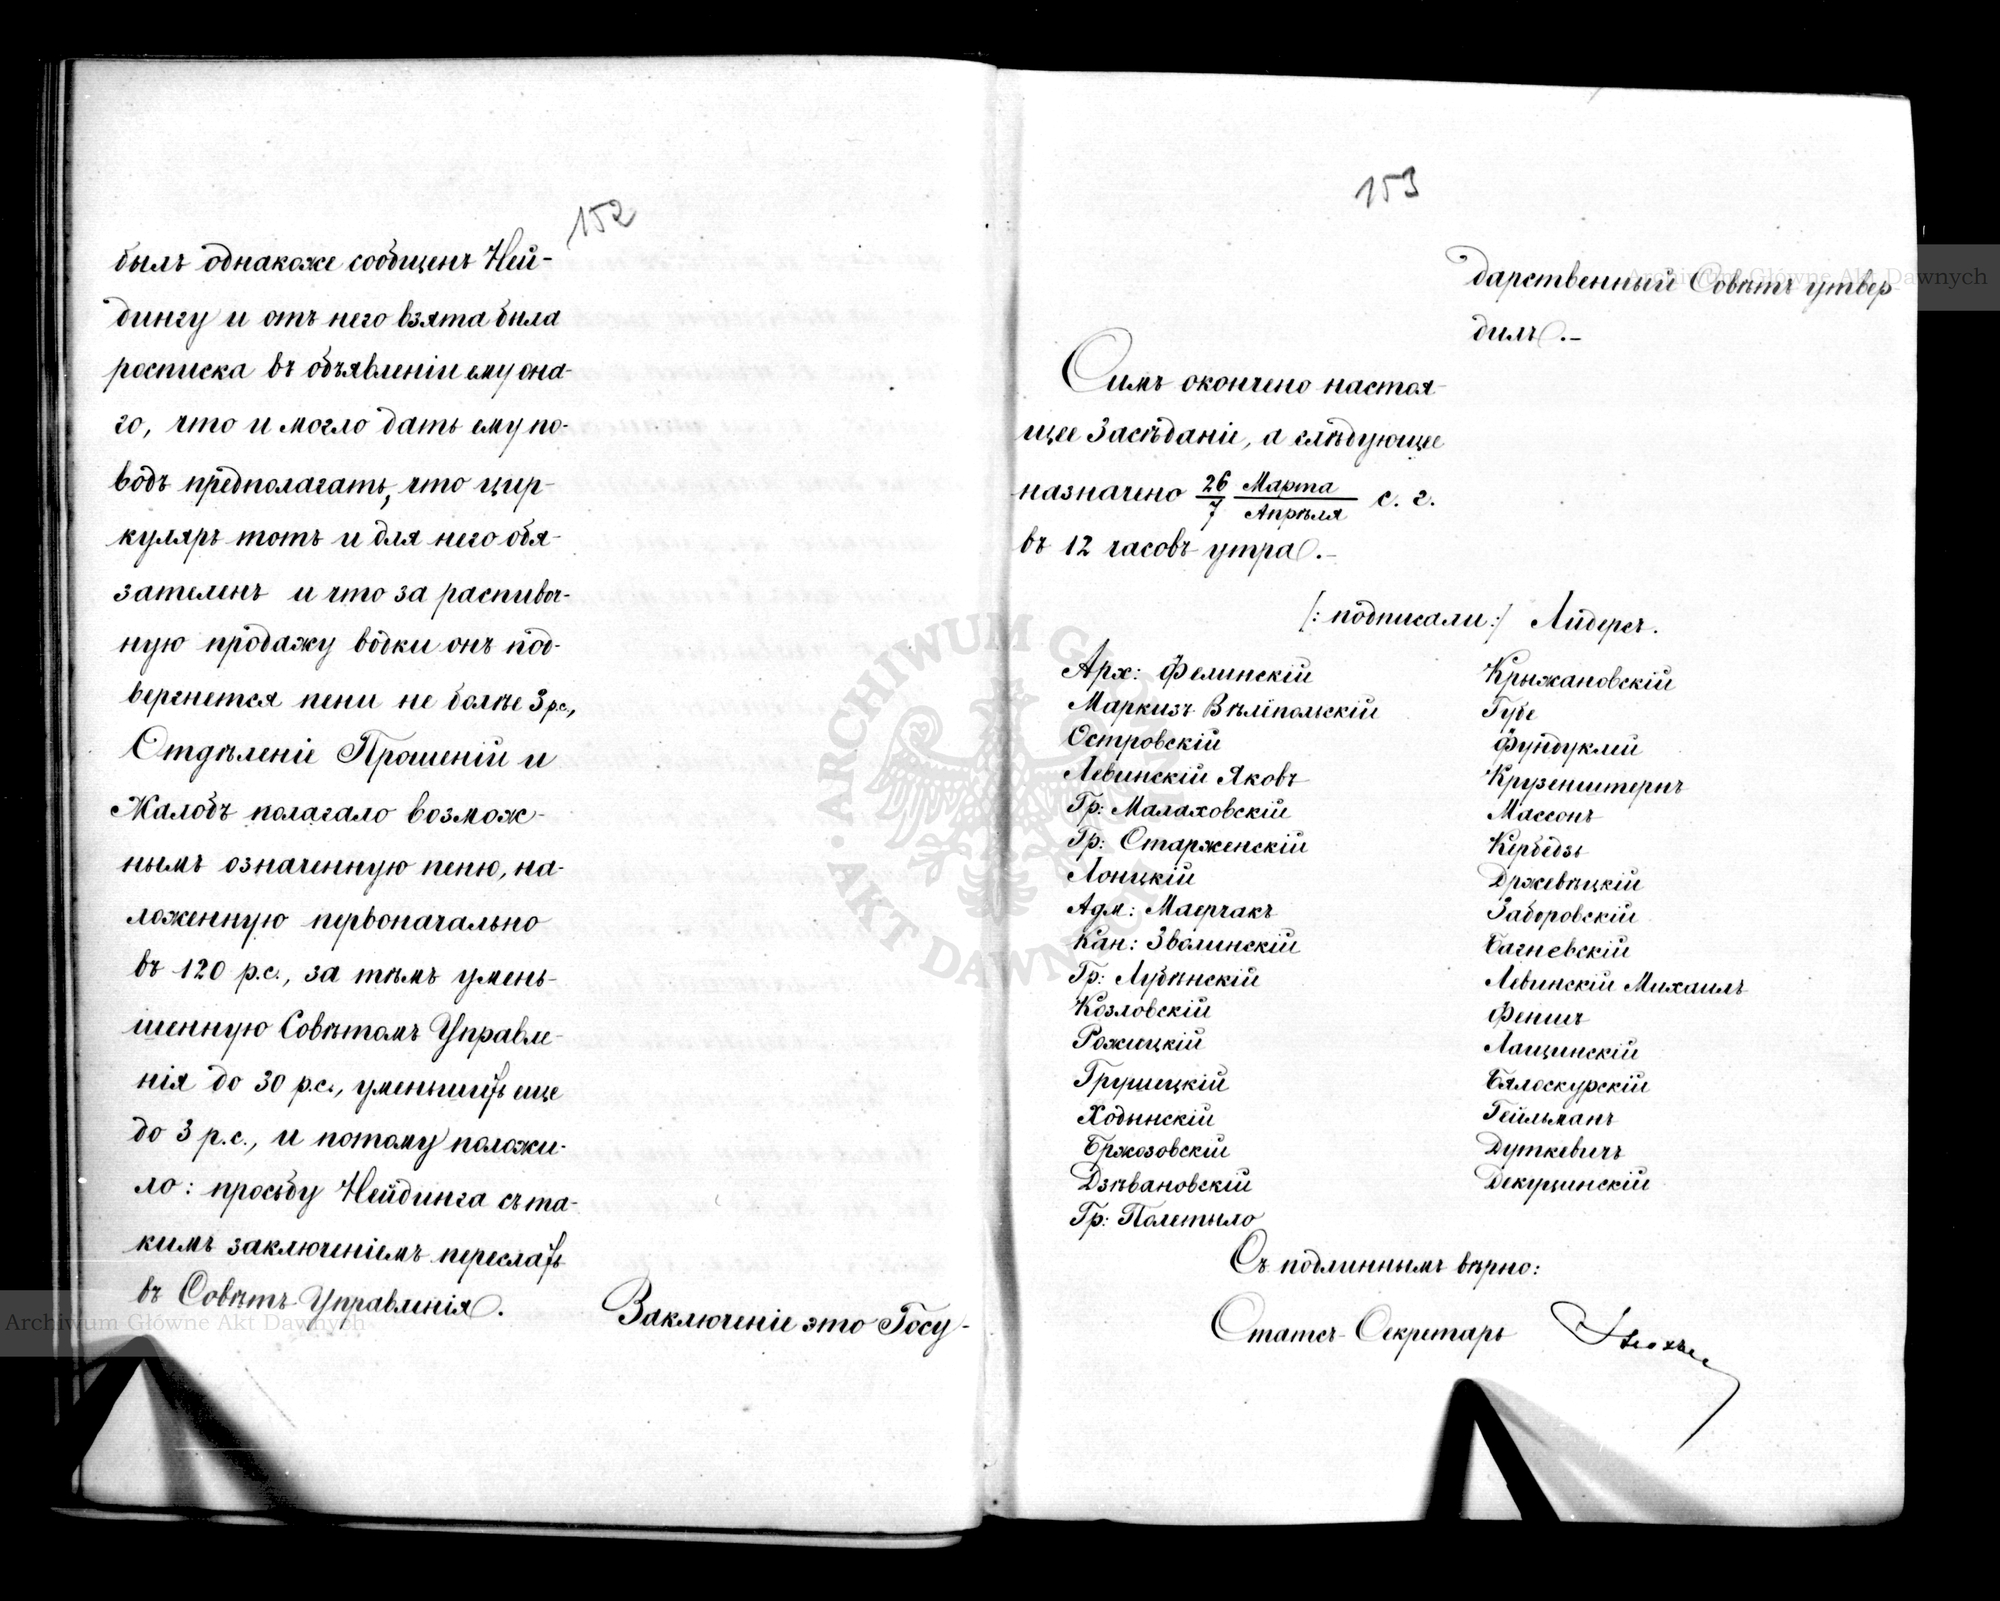 152
былъ однакоже сообщенъ Ней-
дингу и отъ него взята была
росписка въ объявленіи ему она-
го, что и могло дать ему по-
водъ предполагать, что цир-
куляръ тотъ и для него обя-
зателенъ и что за распивоч-
ную продажу водки онъ под-
вергнется пени не болѣе 3 р.с.,
Отдѣленіе Прошеній и
Жалобъ полагало возмож-
нымъ означенную пеню, на-
ложенную первоначально
въ 120 р.с., за тѣмъ умень-
шенную Совѣтомъ Управле-
нія до 30 р.с., уменьшить еще
до 3 р.с., и потому положи-
ло: просьбу Нейдинга съ та-
кимъ заключеніемъ переслать
въ Совѣтъ Управленія.
Заключеніе это Госу-
153
дарственный Совѣтъ утвер
дилъ.-
Симъ окончено настоя-
щее Засѣданіе, а слѣдующее
назначено 26/7 Марта/Апрѣля с. г.
въ 12 часовъ утра.-
/: подписали :/ Лидерсъ.
Арх: Фелинскій
Маркизъ Вѣліпольскій
Островскій
Левинскій Яковъ
Гр: Малаховскій
Гр: Старженскій
Лоницкій
Адм: Маерчакъ
Кан: Зволинскій
Гр: Лубѣнскій
Козловскій
Рожицкій
Грушецкій
Ходынскій
Бржозовскій
Дзѣвановскій
Гр: Полетыло
Крыжановскій
Губе
Фундуклей
Крузенштернъ
Массонъ
Кербедзь
Држевѣцкій
Заборовскій
Багневскій
Левинскій Михаилъ
Феншъ
Лащинскій
Бялоскурскій
Гейльманъ
Дуткевичъ
Декуцинскій
Съ подлиннымъ вѣрно:
Статсъ-Секретарь
Archiwum Główne Akt Dawnych
Archiwum Główne Akt Dawnych